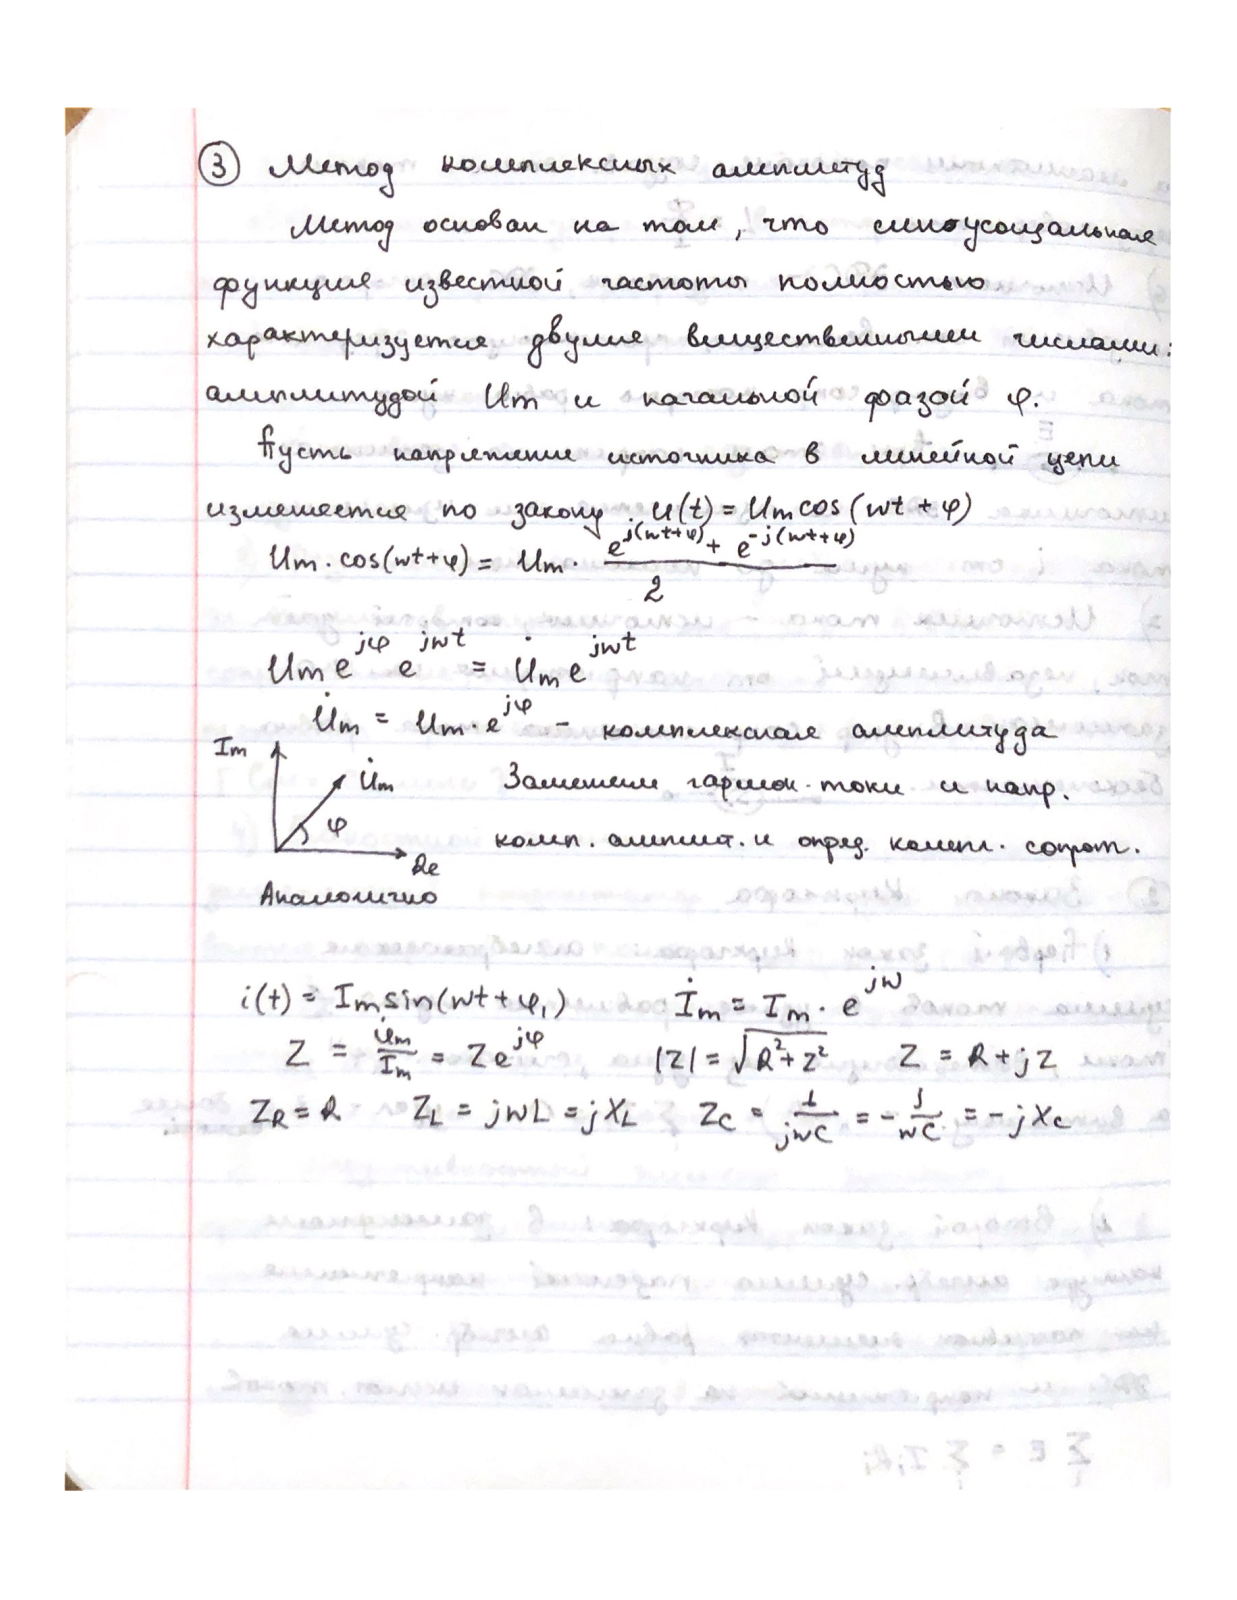 ③ Метод комплексных амплитуд
Метод основан на том, что синоусоидальная
функция известной частоты полностью
характеризуется двумя вещественными числами:
амплитудой Um и начальной фазой φ.
Пусть напряжение источника в линейной цепи
изменяется по закону u(t) = Um cos(wt + φ)
Um · cos(wt+φ) = Um · (e^{j(wt+φ)} + e^{-j(wt+φ)})/2
Um e^{jφ} e^{jwt} = U̇m e^{jwt}
U̇m = Um · e^{jφ} - комплексная амплитуда
Im
U̇m Заменяем гармон. токи и напр.
φ
комп. амплит. и опред. компл. сопрот.
Re
Аналогично
i(t) = Im sin(wt + φ₁) İm = Im · e^{jw}
Z = U̇m/Im = Z e^{jφ} |Z| = √(R² + z²) Z = R + jZ
Z_R = R Z_L = jwL = jX_L Z_C = 1/jwC = - j/wC = - jX_C